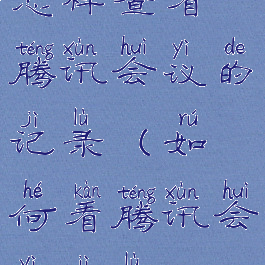 怎样查看
téng xùn huì yì de
腾讯会议的
jì lù rú
记录（如
hé kàn téng xùn huì
何看腾讯会
yì jì lù